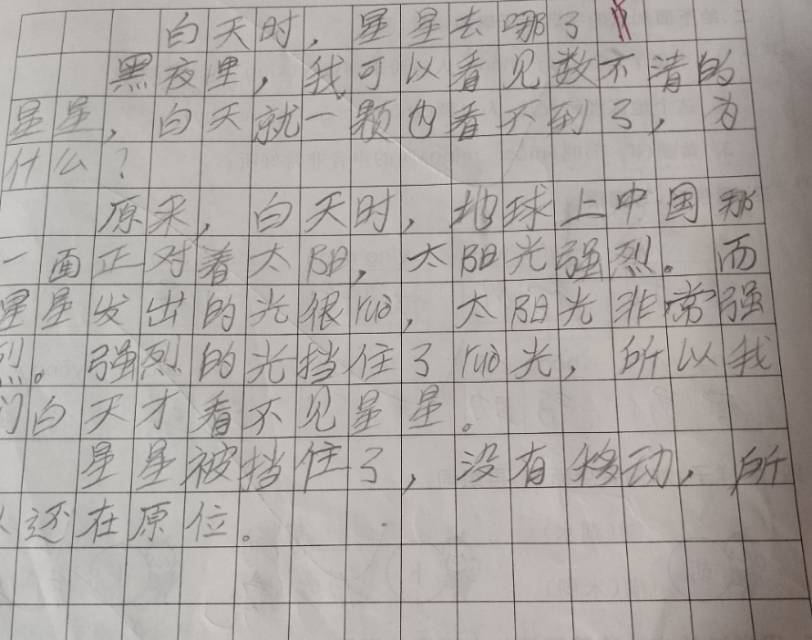 白天时，星星去哪了
黑夜里，我可以看见数不清的
星星，白天就一颗也看不到了，为
什么？
原来，白天时，地球上中国那
一面正对着太阳，太阳光强烈。而
星星发出的光很ruò，太阳光非常强
烈。强烈的光挡住了ruò光，所以我
们白天才看不见星星。
星星被挡住了，没有移动，所
以还在原位。